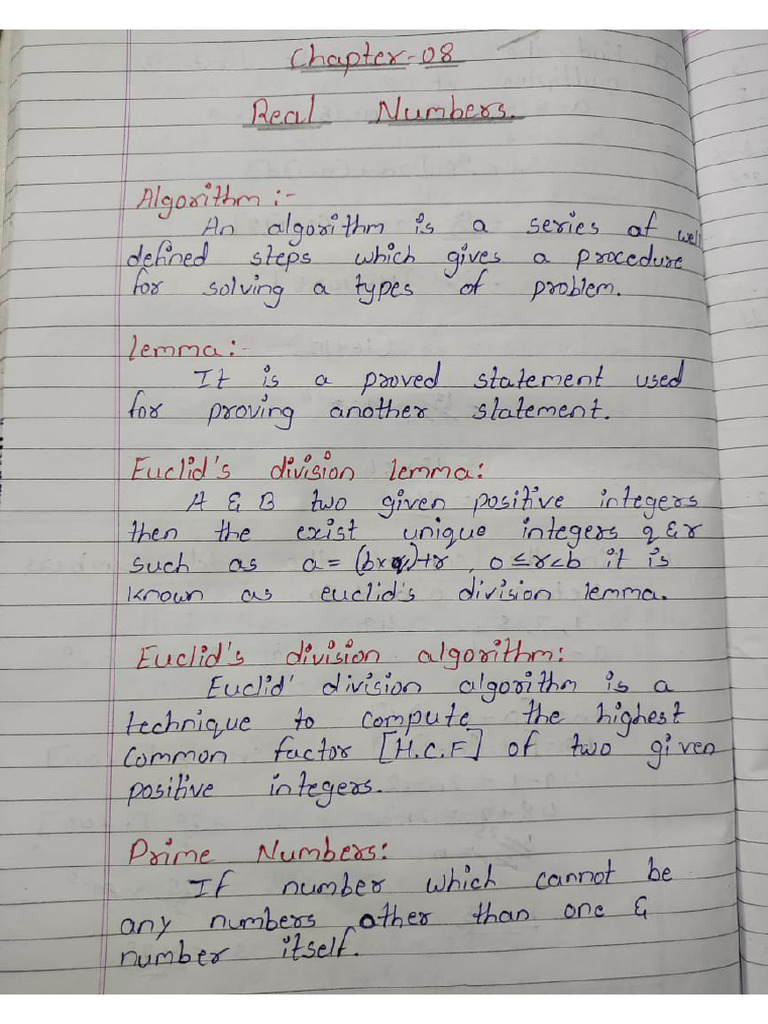 Chapter-08
Real Numbers.
Algorithm :-
An algorithm is a series of well
defined steps which gives a procedure
for solving a types of problem.
lemma:-
It is a proved statement used
for proving another statement.
Euclid's division lemma:
A & B two given positive integers
then the exist unique integers q & r
such as a = (b×q)+r, 0≤r<b it is
known as euclid's division lemma.
Euclid's division algorithm:
Euclid' division algorithm is a
technique to compute the highest
common factor [H.C.F] of two given
positive integers.
Prime Numbers:
If number which cannot be
any numbers other than one &
number itself.